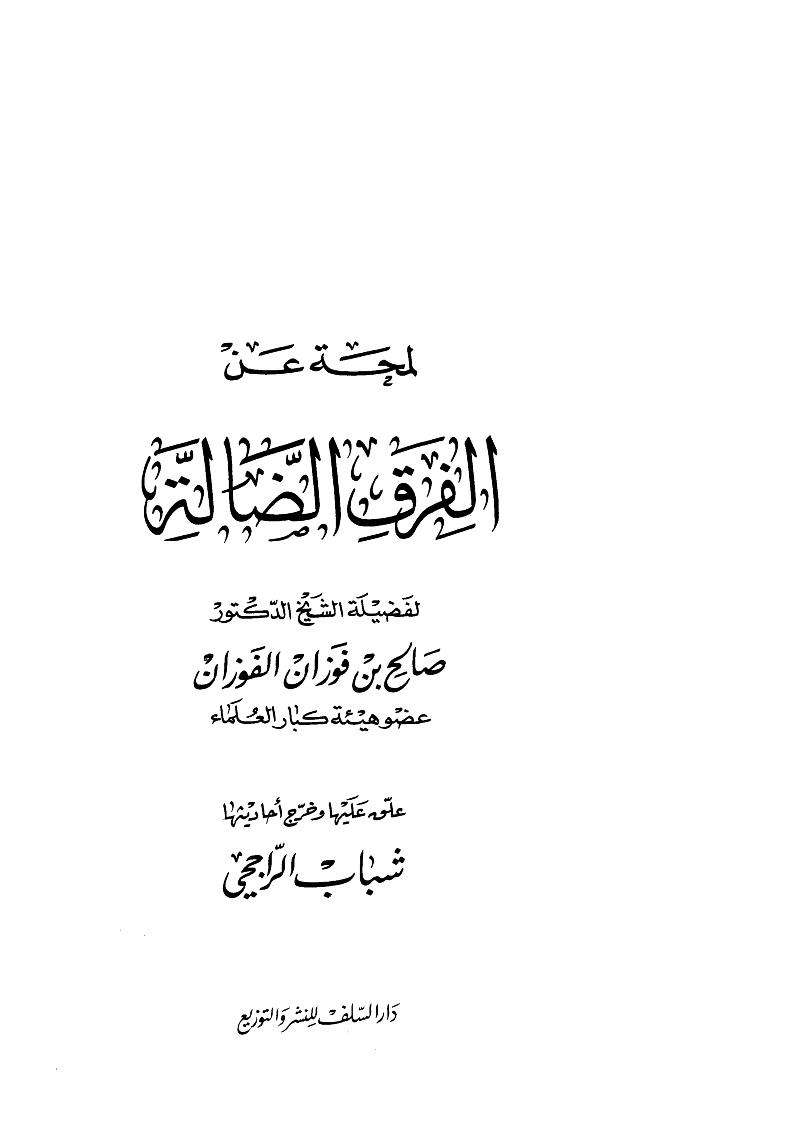 لمحة عن
الفرق الضالة
لفضيلة الشيخ الدكتور
صالح بن فوزان الفوزان
عضو هيئة كبار العلماء
علق عليها وخرج أحاديثها
شباب الراجحي
دار السلف للنشر والتوزيع